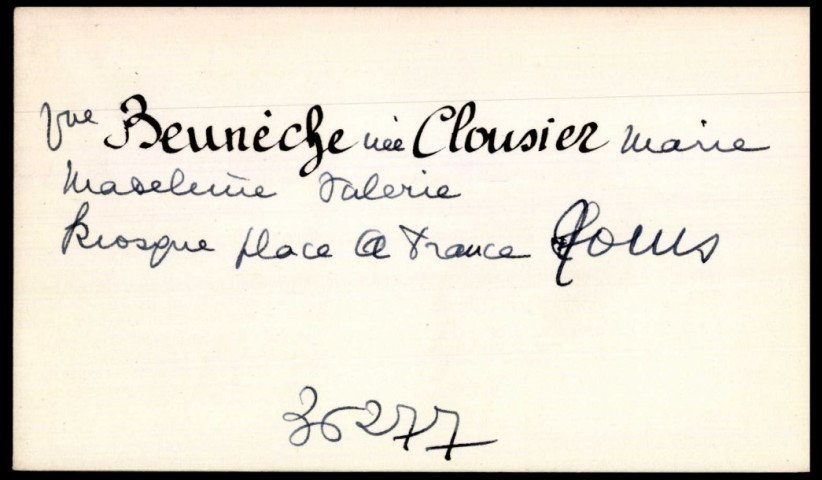 Vve Beunèche née Clousier Marie
Madeleine Valerie
Kiosque place A France Tours
36277